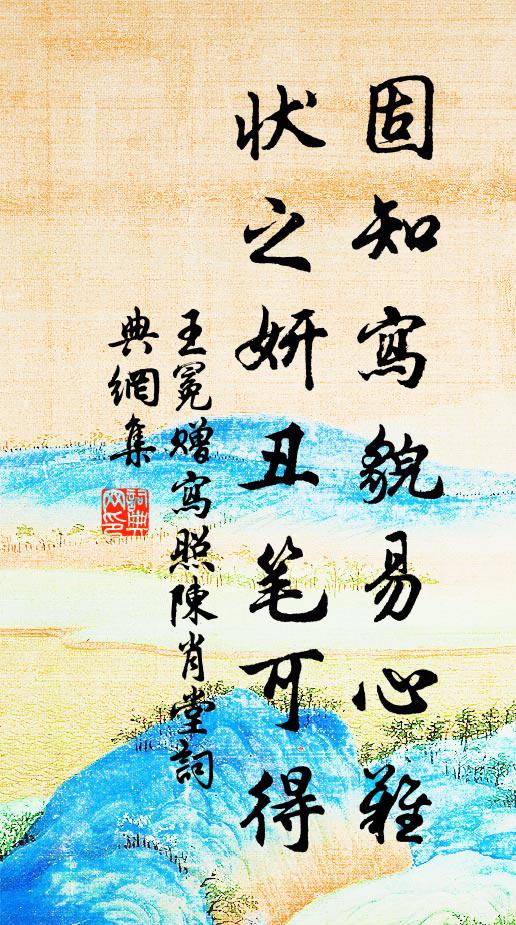 固知寫貌易心難
状之妍丑笔可得
王冕贈寫照陳肖堂詞
典網集